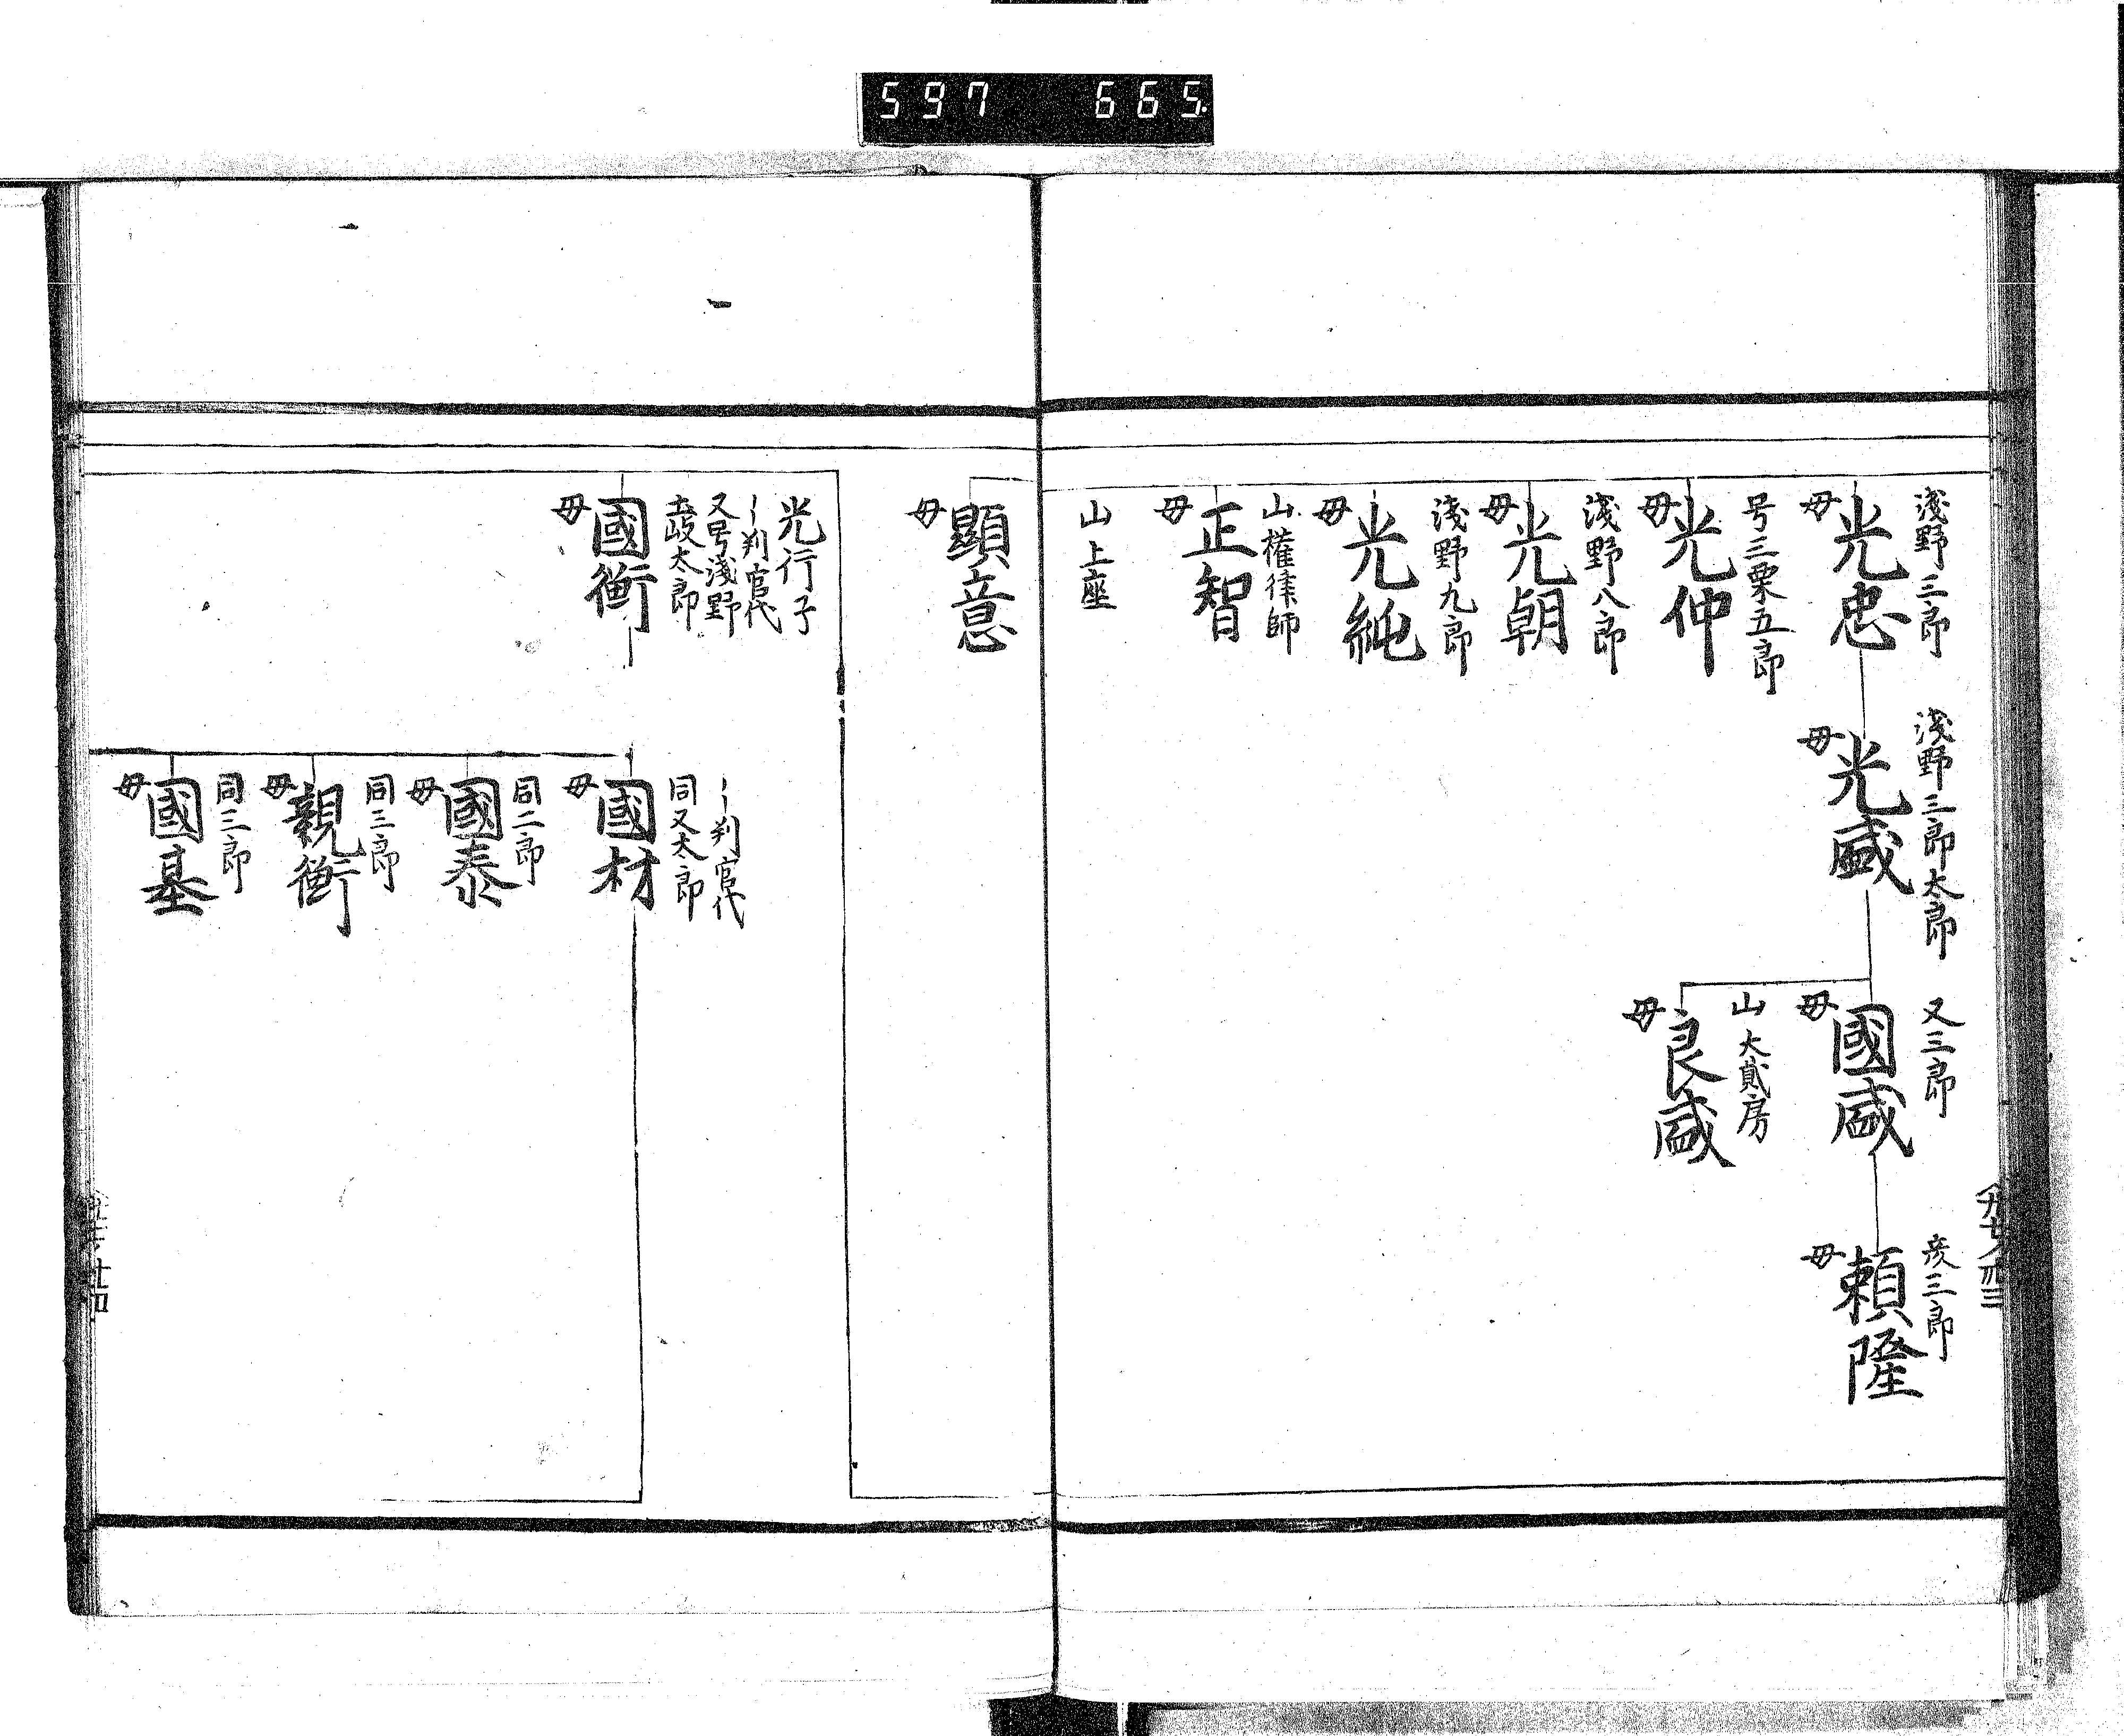 597 665
浅野三郎
光忠
母
浅野三郎太郎
光盛
母
又三郎
國盛
母
彦三郎
頼隆
母
山大貳房
良盛
母
号三栗五郎
光仲
母
浅野八郎
光朝
母
浅野九郎
光純
母
山権律師
正智
母
山上座
顯意
母
光行子
判官代
又号浅野
土岐太郎
國衡
母
判官代
同又太郎
國材
母
同二郎
國泰
母
同三郎
親衡
母
同三郎
國基
母